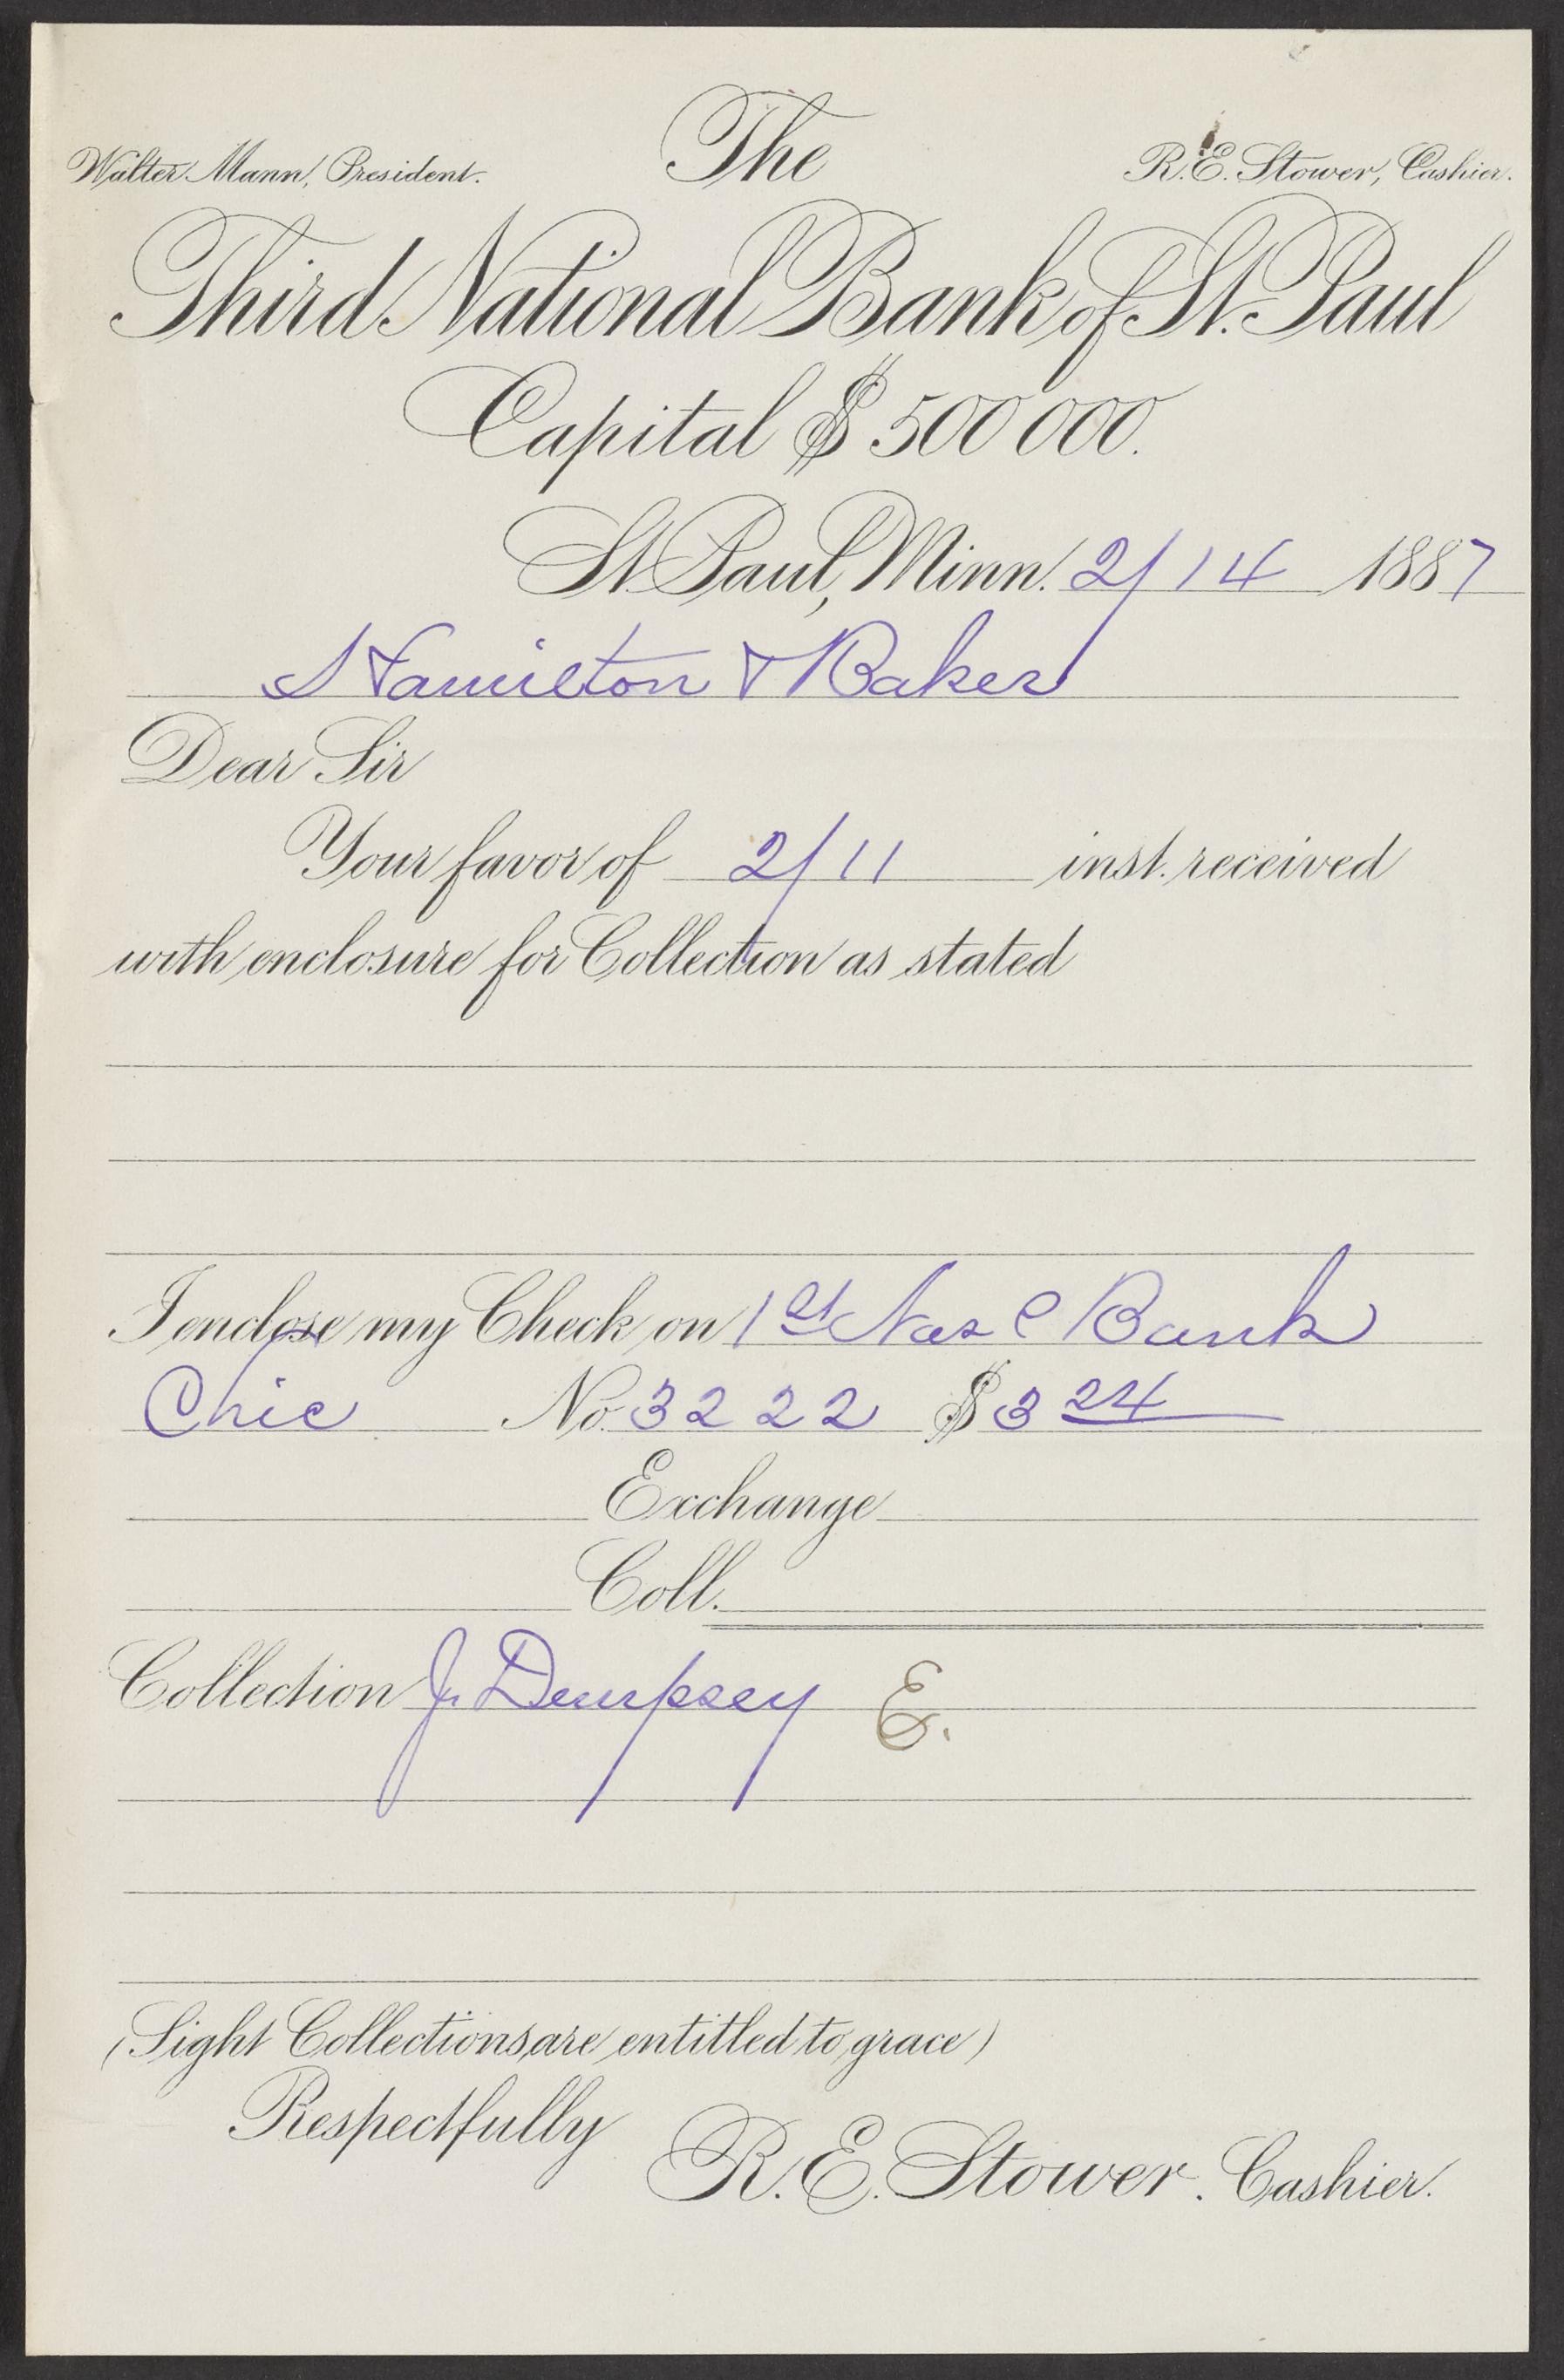 The
Walter Mann, President.
R. E. Stower, Cashier.
Third National Bank of St. Paul
Capital $500 000.
St. Paul, Minn. 2/14 1887
Hamilton & Baker
Dear Sir
Your favor of 2/11 inst. received
with enclosure for Collection as stated
I enclose my Check on 1st Nat l Bank
Chic No. 3222 $3 24
Exchange
Coll.
Collection J. Dempsey E.
(Sight Collections are entitled to grace)
Respectfully
R. E. Stower. Cashier.